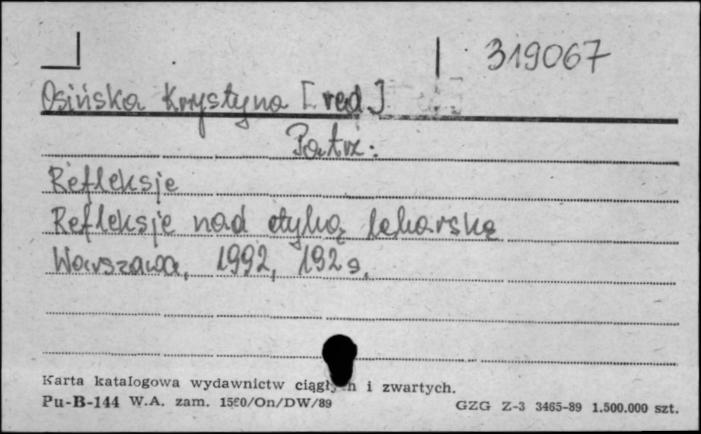 319067
Osińska Krystyna [red]
Patrz:
Refleksje
Refleksje nad etyką lekarską
Warszawa, 1992, 192 s.
Karta katalogowa wydawnictw ciągłych i zwartych.
Pu-B-144 W.A. zam. 1580/On/DW/89
GZG Z-3 3465-89 1.500.000 szt.